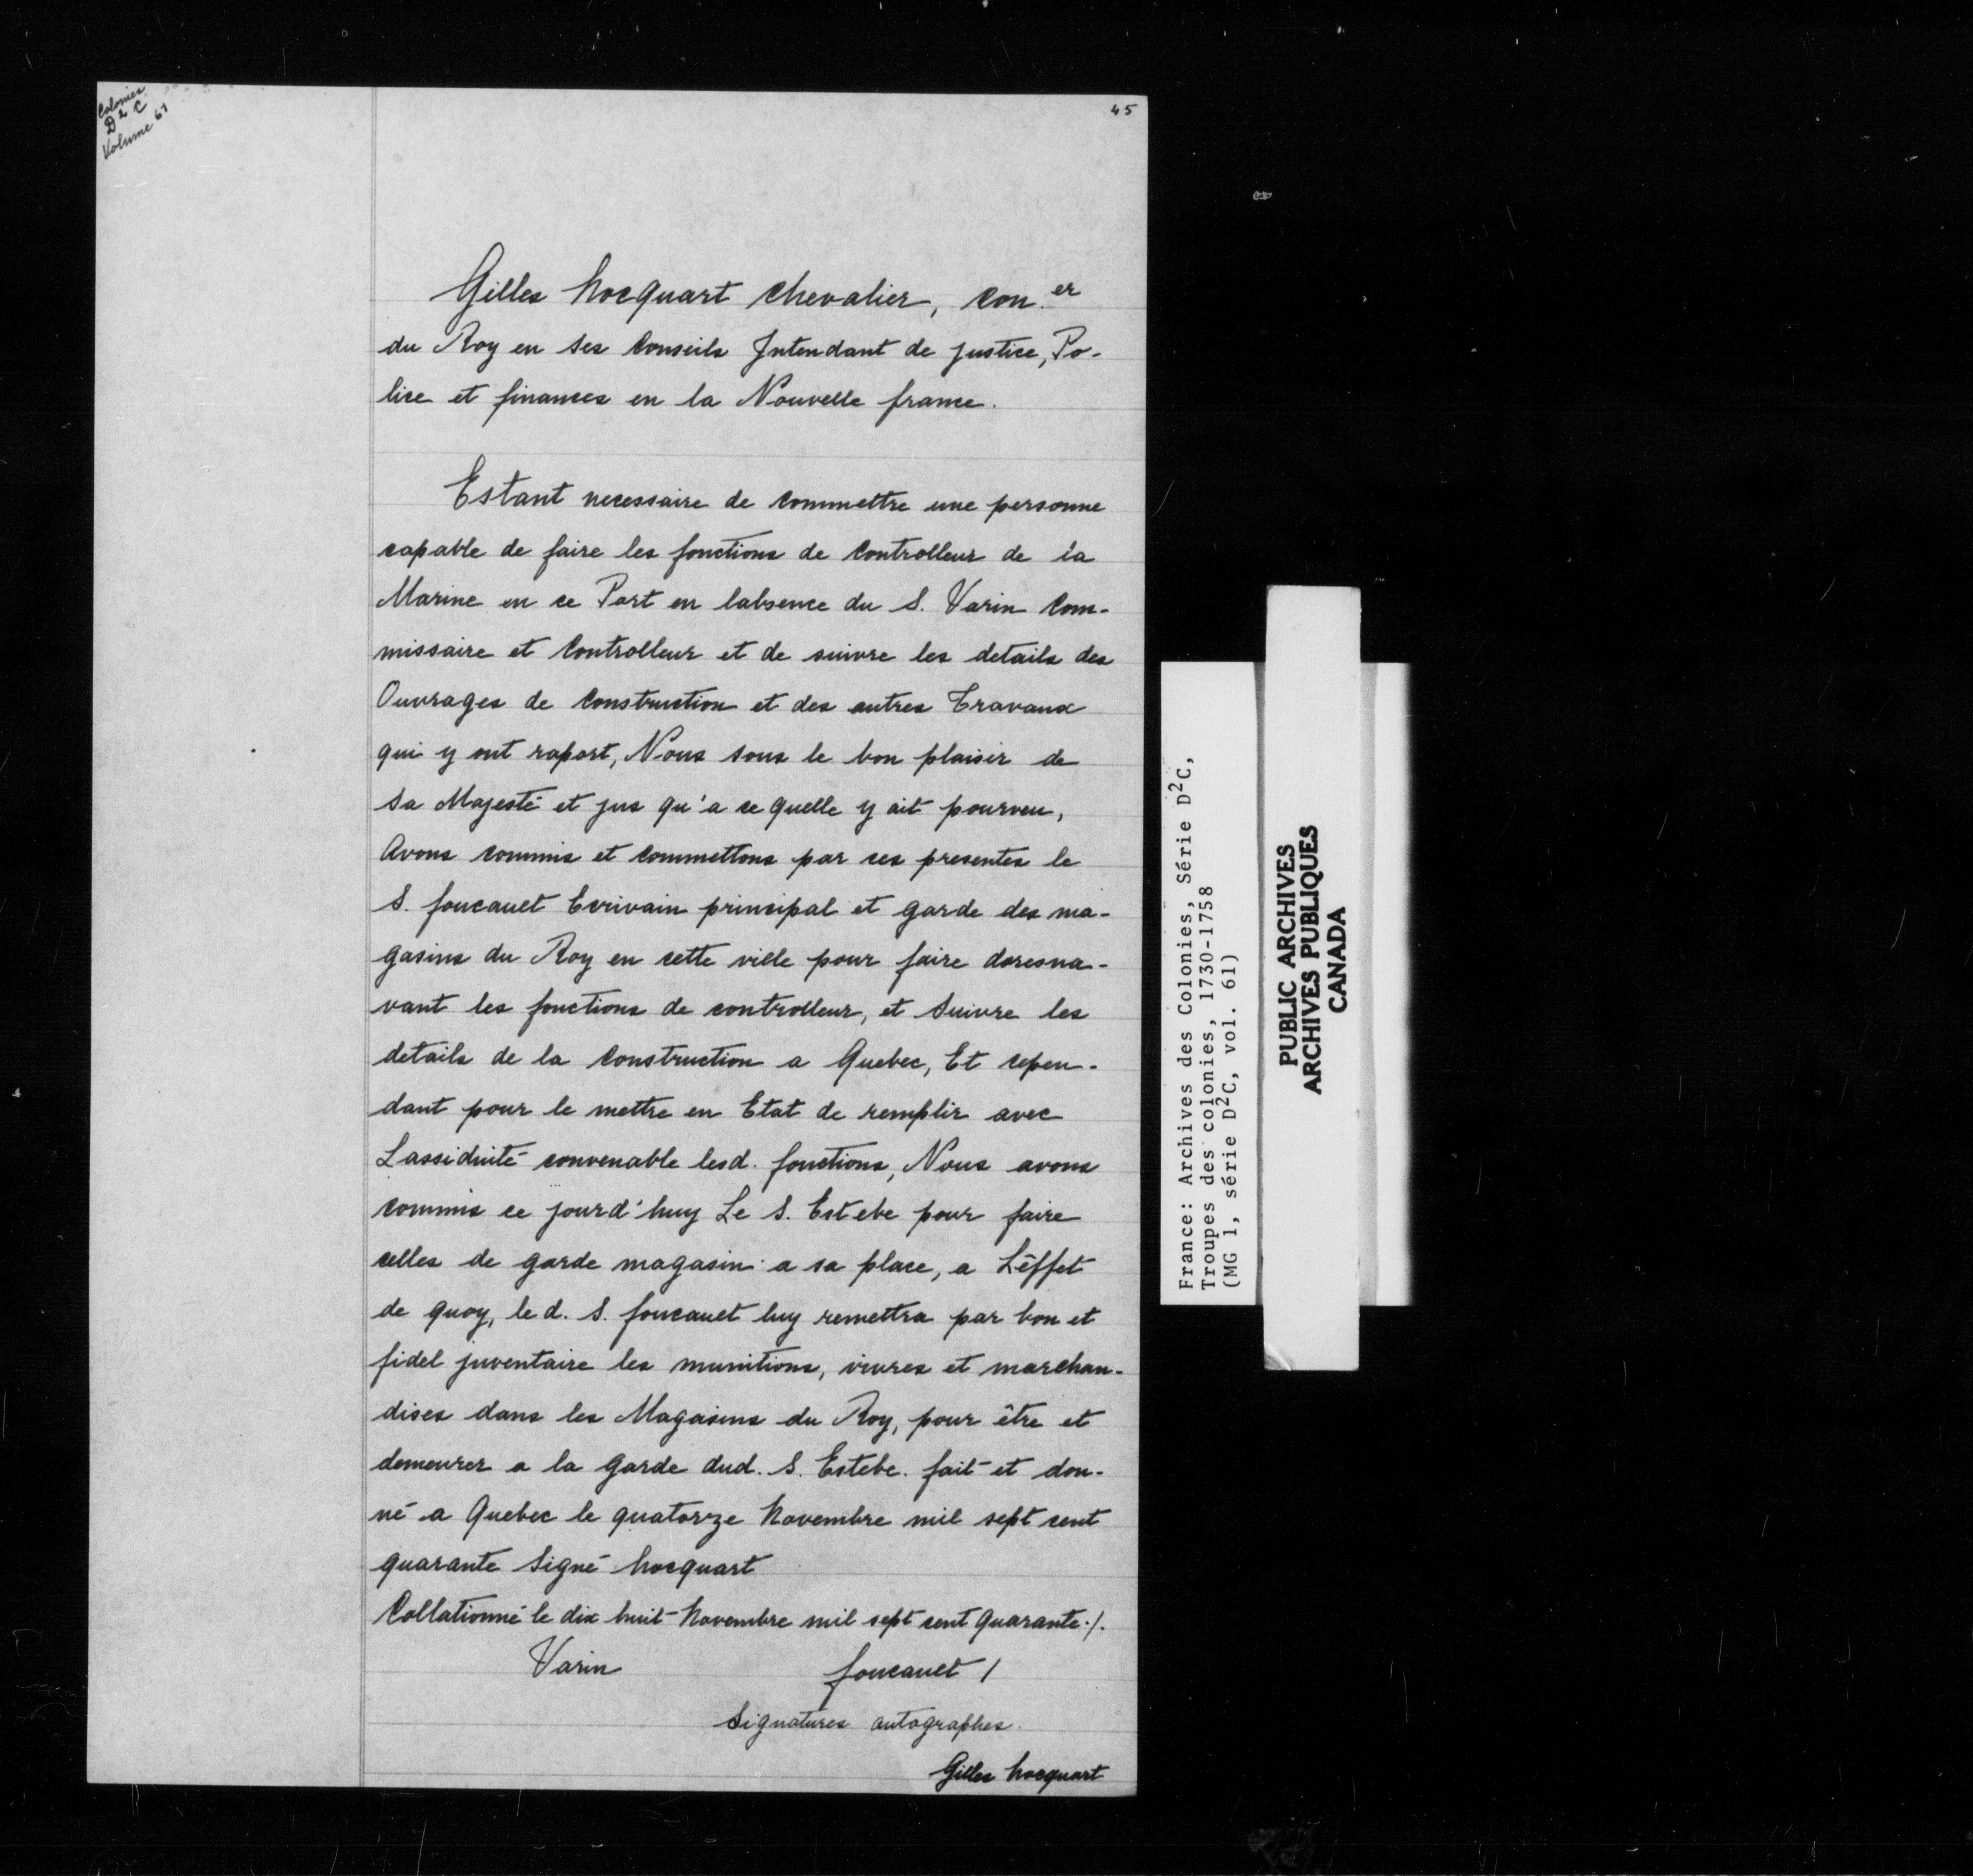 Colonies
D² C
Volume 61
45
Gilles hocquart chevalier, con.er
du Roy en ses Conseils Jntendant de justice, Po-
lice et finances en la Nouvelle france.
Estant necessaire de commettre une personne
capable de faire les fonctions de Controlleur de la
Marine en ce Port en labsence du S. Varin Com-
missaire et Controlleur et de suivre les details des
Ouvrages de Construction et des autres Travaux
qui y ont raport, Nous sous le bon plaisir de
sa Majesté et jus qu'a ce quelle y ait pourveu,
Avons commis et commettons par ces presentes le
S. foucauet Ecrivain principal et garde des ma-
gasins du Roy en cette ville pour faire doresna-
vant les fonctions de controlleur, et Suivre les
details de la Construction a Quebec, Et cepen-
dant pour le mettre en Etat de remplir avec
Lassiduité convenable lesd. fonctions, Nous avons
commis ce jourd'huy Le S. Estebe pour faire
celles de garde magasin a sa place, a Léffet
de quoy, led. S. foucauet luy remettra par bon et
fidel jnventaire les munitions, vivres et marchan-
dises dans les Magasins du Roy, pour être et
demeurer a la Garde dud. S. Estebe. fait et don-
né a Quebec le quatorze Novembre mil sept cent
quarante Signé hocquart
Collationné le dix huit Novembre mil sept cent quarante ./.
Varin foucauet /
Signatures autographes.
Gilles hocquart
France: Archives des Colonies, Série D²C,
Troupes des colonies, 1730-1758
(MG 1, série D²C, vol. 61)
PUBLIC ARCHIVES
ARCHIVES PUBLIQUES
CANADA